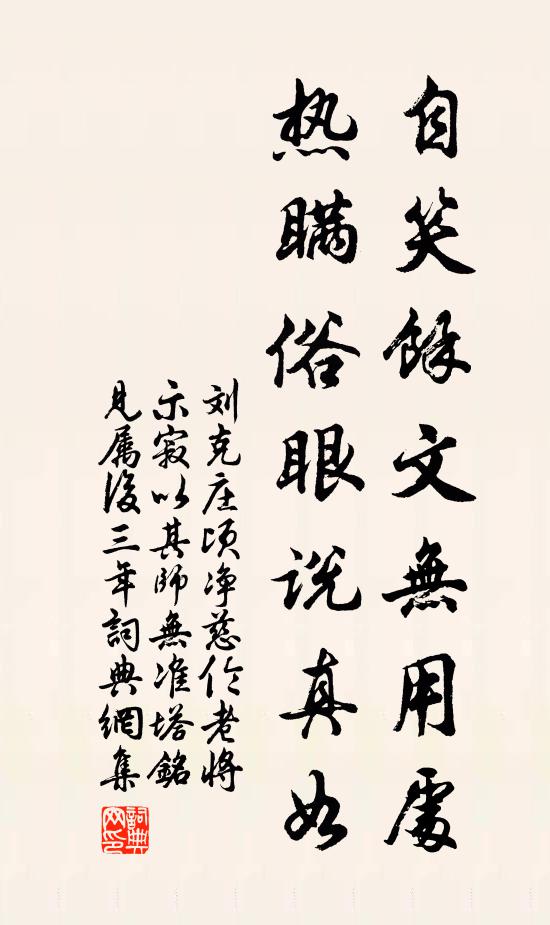 自笑餘文無用處
热瞒俗眼説真如
刘克庄顷净慈伦老将
示寂以其師無准塔銘
見属後三年詞典網集
詞典
网印